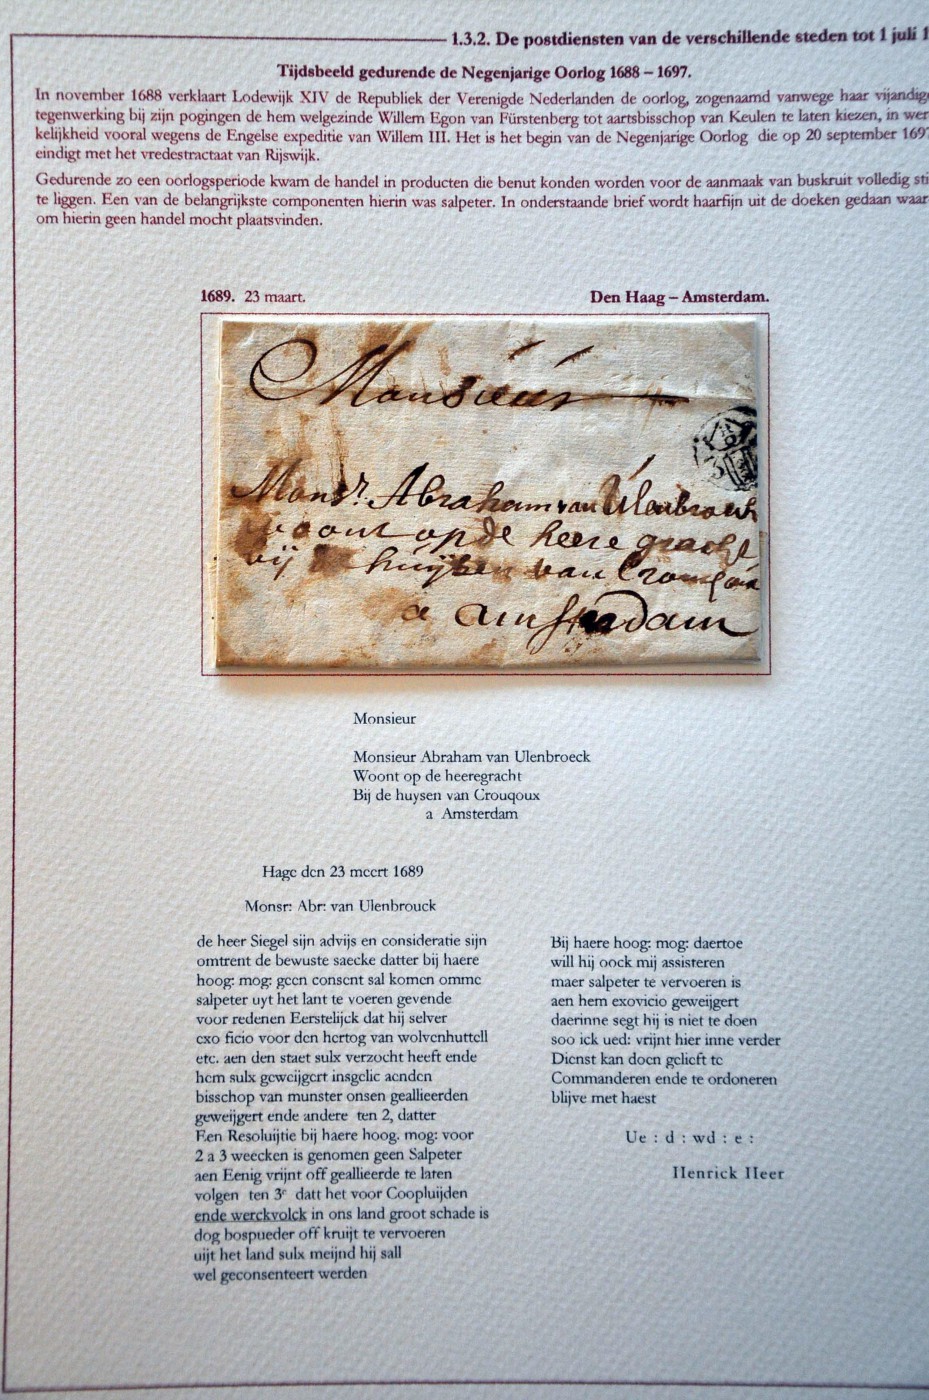 1.3.2. De postdiensten van de verschillende steden tot 1 juli 1
Tijdsbeeld gedurende de Negenjarige Oorlog 1688 – 1697.
In november 1688 verklaart Lodewijk XIV de Republiek der Verenigde Nederlanden de oorlog, zogenaamd vanwege haar vijandige
tegenwerking bij zijn pogingen de hem welgezinde Willem Egon van Fürstenberg tot aartsbisschop van Keulen te laten kiezen, in wer
kelijkheid vooral wegens de Engelse expeditie van Willem III. Het is het begin van de Negenjarige Oorlog die op 20 september 1697
eindigt met het vredestractaat van Rijswijk.
Gedurende zo een oorlogsperiode kwam de handel in producten die benut konden worden voor de aanmaak van buskruit volledig sti
te liggen. Een van de belangrijkste componenten hierin was salpeter. In onderstaande brief wordt haarfijn uit de doeken gedaan waar
om hierin geen handel mocht plaatsvinden.
1689. 23 maart. Den Haag – Amsterdam.
Monsieur
Monsr. Abraham van Ulenbrouck
woont op de heere gracht
bij de huijsen van Crouqoux
a Amsterdam
Monsieur
Monsieur Abraham van Ulenbroeck
Woont op de heeregracht
Bij de huysen van Crouqoux
a Amsterdam
Hage den 23 meert 1689
Monsr: Abr: van Ulenbrouck
de heer Siegel sijn advijs en consideratie sijn
omtrent de bewuste saecke datter bij haere
hoog: mog: geen consent sal komen omme
salpeter uyt het lant te voeren gevende
voor redenen Eerstelijck dat hij selver
exo ficio voor den hertog van wolvenhuttell
etc. aen den staet sulx verzocht heeft ende
hem sulx geweijgert insgelic aenden
bisschop van munster onsen geallieerden
geweijgert ende andere ten 2, datter
Een Resoluijtie bij haere hoog. mog: voor
2 a 3 weecken is genomen geen Salpeter
aen Eenig vrijnt off geallieerde te laten
volgen ten 3e datt het voor Coopluijden
ende werckvolck in ons land groot schade is
dog bospueder off kruijt te vervoeren
uijt het land sulx meijnd hij sall
wel geconsenteert werden
Bij haere hoog: mog: daertoe
will hij oock mij assisteren
maer salpeter te vervoeren is
aen hem exovicio geweijgert
daerinne segt hij is niet te doen
soo ick ued: vrijnt hier inne verder
Dienst kan doen gelieft te
Commanderen ende te ordoneren
blijve met haest
Ue : d : wd : e :
Henrick Heer